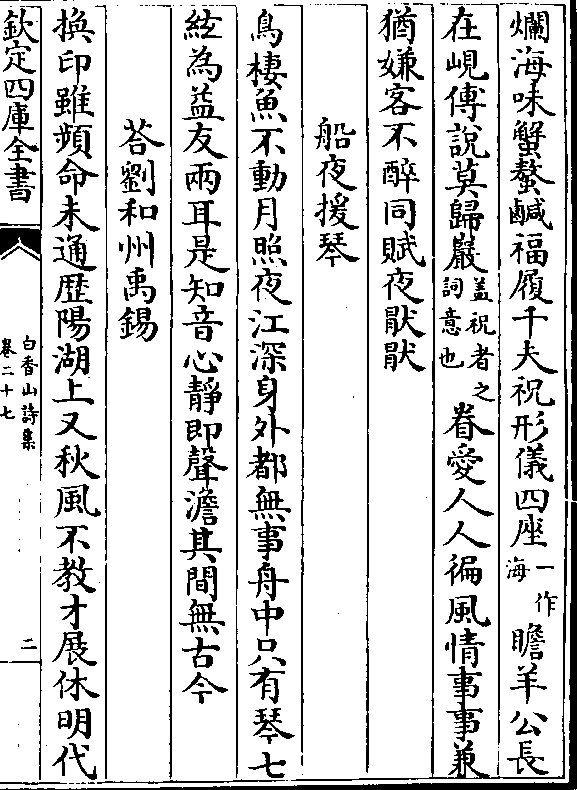 爛海味蟹螯鹹福履千夫祝形儀四座一作海瞻羊公長
在峴傅說莫歸巖蓋祝者之詞意也眷愛人人徧風情事事兼
猶嫌客不醉同賦夜厭厭
船夜援琴
鳥棲魚不動月照夜江深身外都無事舟中只有琴七
絃為益友兩耳是知音心靜即聲澹其間無古今
荅劉和州禹錫
換印雖頻命未通歴陽湖上又秋風不教才展休明代
欽定四庫全書
白香山詩集
卷二十七
二